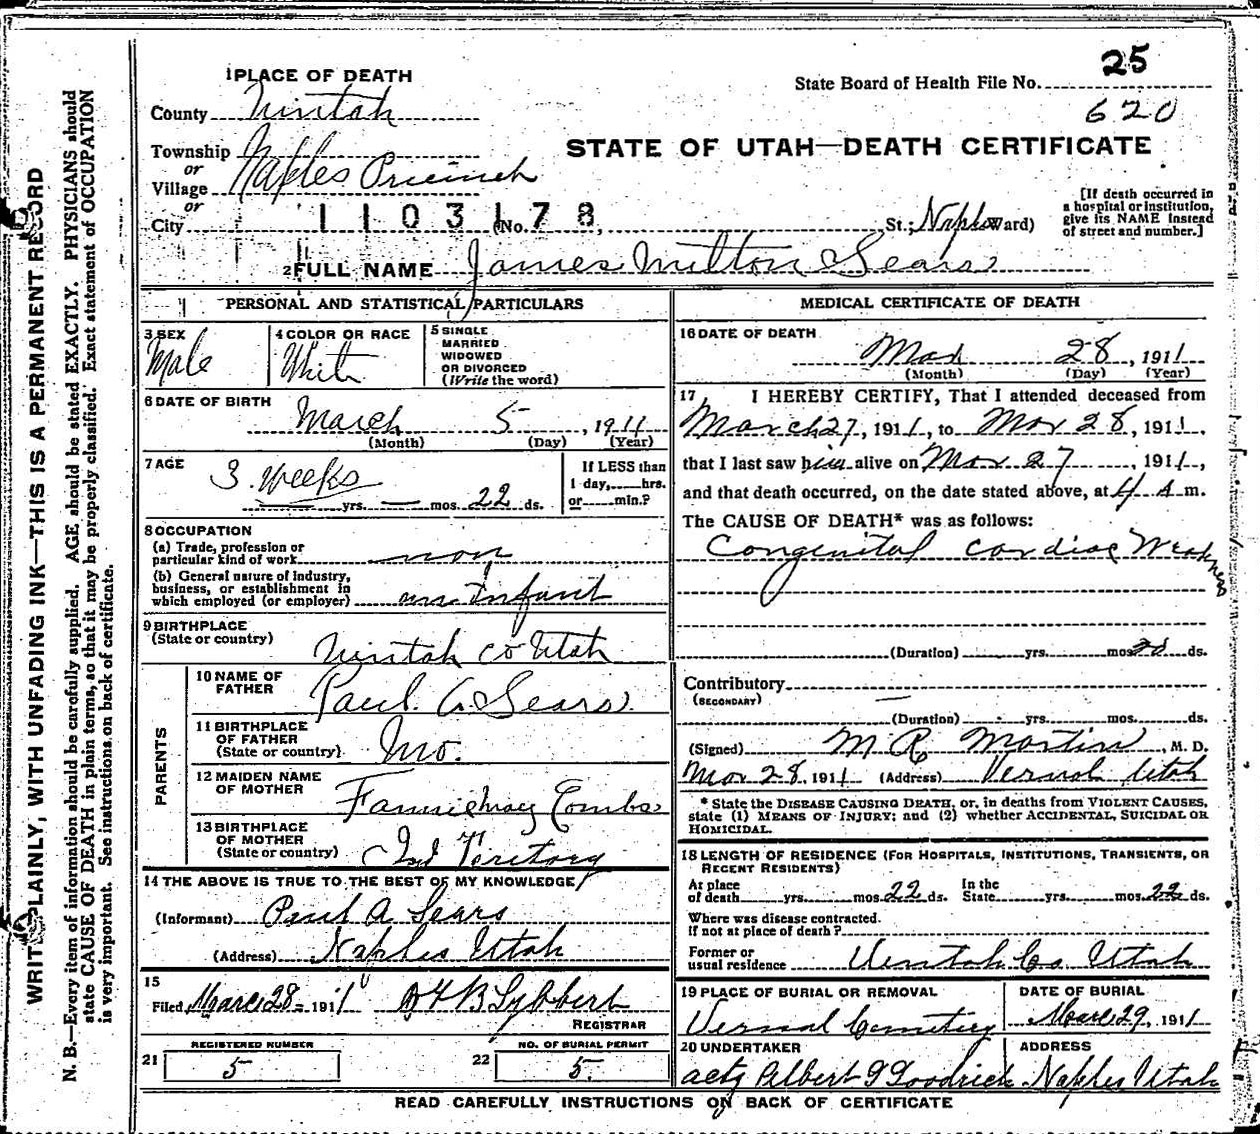 25
State Board of Health File No.
620
1 PLACE OF DEATH
County Uintah
STATE OF UTAH—DEATH CERTIFICATE
Township
or
Village Naples Precinct
or
City 1103178 (No. St.; Naples Ward)
[If death occurred in
a hospital or institution,
give its NAME instead
of street and number.]
2 FULL NAME James Milton Sears
WRITE PLAINLY, WITH UNFADING INK—THIS IS A PERMANENT RECORD
N. B.—Every item of information should be carefully supplied. AGE should be stated EXACTLY. PHYSICIANS should
state CAUSE OF DEATH in plain terms, so that it may be properly classified. Exact statement of OCCUPATION
is very important. See instructions on back of certificate.
PERSONAL AND STATISTICAL PARTICULARS
3 SEX
Male
4 COLOR OR RACE
White
5 SINGLE
MARRIED
WIDOWED
OR DIVORCED
(Write the word)
6 DATE OF BIRTH
March 5, 1911
(Month) (Day) (Year)
7 AGE
3 weeks
yrs. — mos. 22 ds.
If LESS than
1 day, hrs.
or min.?
8 OCCUPATION
(a) Trade, profession or
particular kind of work non
(b) General nature of industry,
business, or establishment in
which employed (or employer) Infant
9 BIRTHPLACE
(State or country)
Uintah Co Utah
PARENTS
10 NAME OF
FATHER
Paul A Sears
11 BIRTHPLACE
OF FATHER
(State or country)
Mo.
12 MAIDEN NAME
OF MOTHER
Fannie May Combs
13 BIRTHPLACE
OF MOTHER
(State or country)
Ind Teritory
14 THE ABOVE IS TRUE TO THE BEST OF MY KNOWLEDGE
(Informant) Paul A Sears
(Address) Naples Utah
15
Filed Marc 28 1911 Sybbert
REGISTRAR
REGISTERED NUMBER
21 5
NO. OF BURIAL PERMIT
22 5.
MEDICAL CERTIFICATE OF DEATH
16 DATE OF DEATH
Mar 28, 1911
(Month) (Day) (Year)
17 I HEREBY CERTIFY, That I attended deceased from
March 27, 1911, to Mar 28, 1911,
that I last saw him alive on Mar 27, 1911,
and that death occurred, on the date stated above, at 4 A m.
The CAUSE OF DEATH* was as follows:
Congenital Cardiac Weakness
(Duration) yrs. mos. ds.
Contributory
(SECONDARY) —
(Duration) yrs. mos. ds.
(Signed) M R Martin, M. D.
Mar 28, 1911 (Address) Vernal Utah
* State the DISEASE CAUSING DEATH, or, in deaths from VIOLENT CAUSES,
state (1) MEANS OF INJURY; and (2) whether ACCIDENTAL, SUICIDAL OR
HOMICIDAL.
18 LENGTH OF RESIDENCE (FOR HOSPITALS, INSTITUTIONS, TRANSIENTS, OR
RECENT RESIDENTS)
At place
of death yrs. mos. 22 ds. In the
State yrs. mos. 22 ds.
Where was disease contracted.
If not at place of death?
Former or
usual residence Uintah Co Utah
19 PLACE OF BURIAL OR REMOVAL
Vernal Cemetery
DATE OF BURIAL
Marc 29, 1911
20 UNDERTAKER
actg Pilbert G Goodrich
ADDRESS
Naples Utah
READ CAREFULLY INSTRUCTIONS ON BACK OF CERTIFICATE